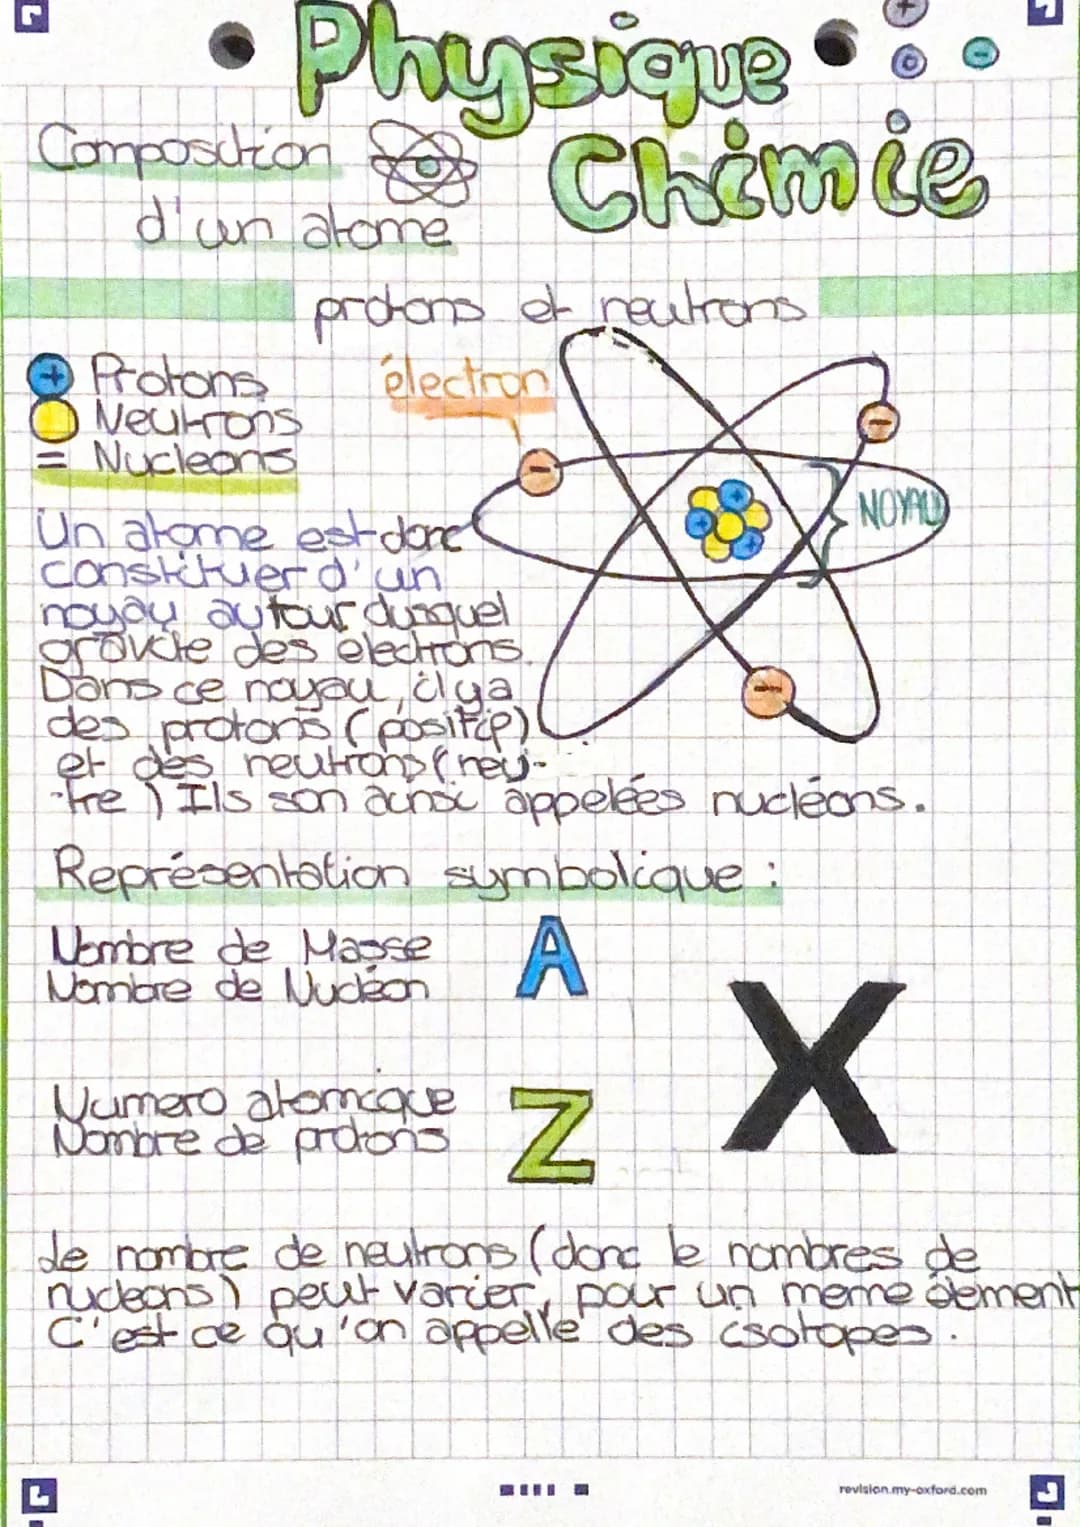 Physique
Chimie
Composition
d'un atome
protons et neutrons
+ Protons
Neutrons
= Nucleons
électron
NOYAU
Un atome est donc
constituer d'un
noyau autour dusquel
gravite des electrons.
Dans ce noyau, il y a
des protons (positif)
et des neutrons (neu-
-tre) Ils son ainsi appelées nucléons.
Représentation symbolique :
Nombre de Masse
Nombre de Nucléon
A
X
Numero atomique
Nombre de protons
Z
Le nombre de neutrons (donc le nombres de
nucleons) peut varier, pour un meme élement
C'est ce qu'on appelle des isotopes.
revision.my-oxford.com